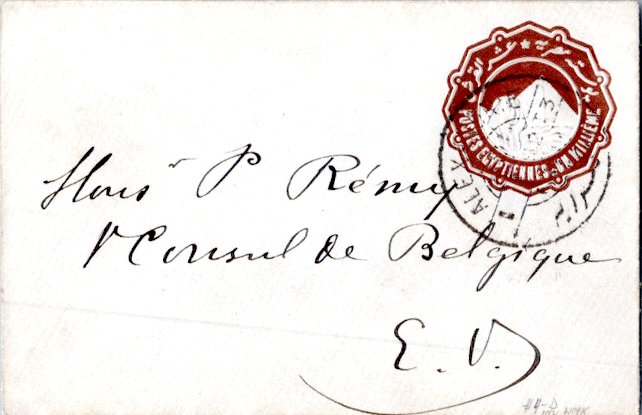 POSTES EGYPTIENNES UN MILLIÈME
ALEX
Mons.r P Rémy
V Consul de Belgique
E. V.